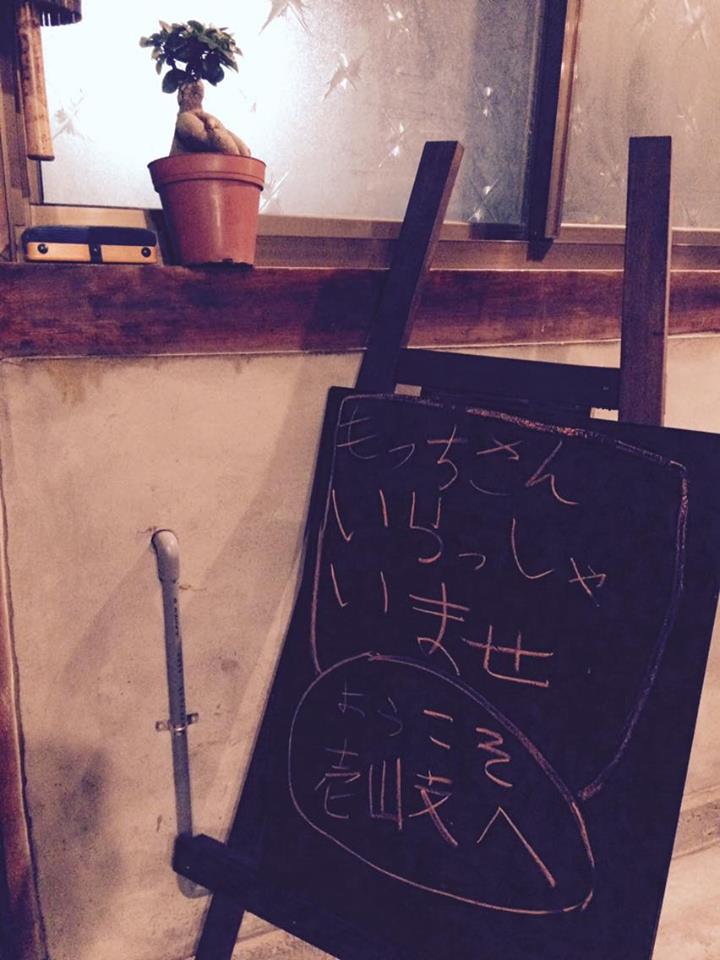 もっちさん
いらっしゃ
いませ
ようこそ
壱岐へ